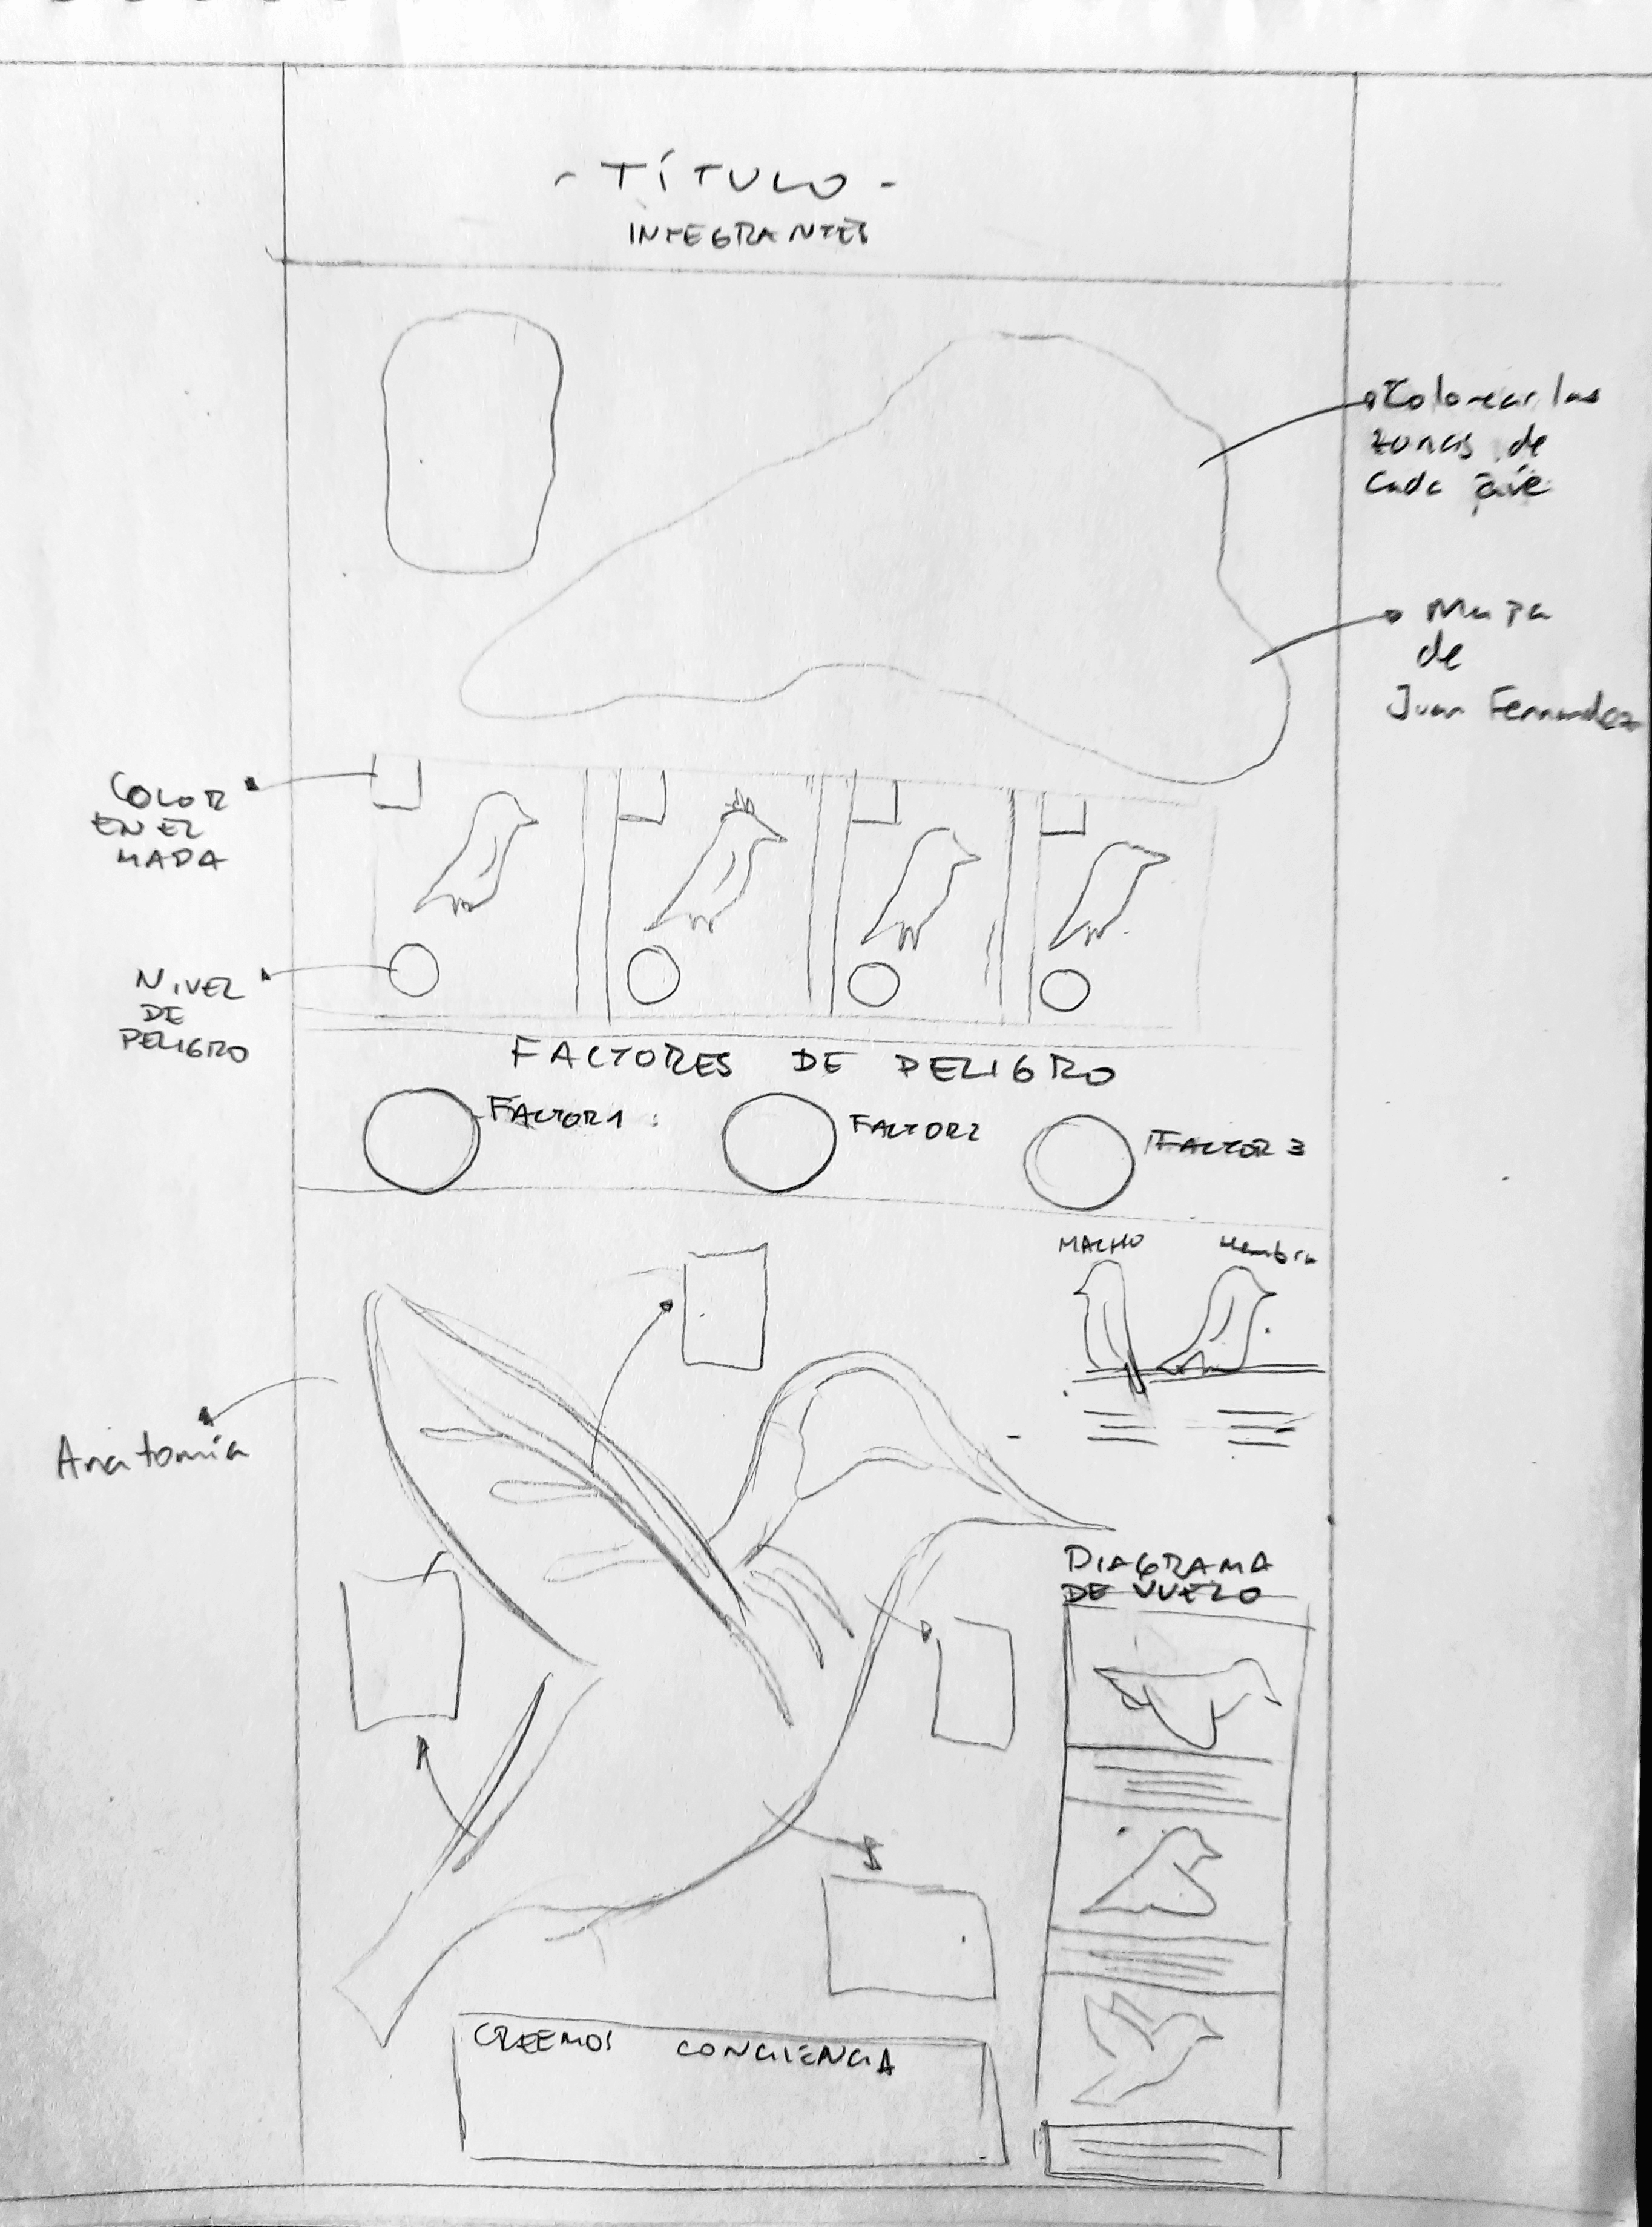 - TÍTULO -
INTEGRANTES
Colorear las
zonas de
cada ave
Mapa
de
Juan Fernandez
COLOR
EN EL
MAPA
NIVEL
DE
PELIGRO
FACTORES DE PELIGRO
FACTOR 1
FACTOR 2
FACTOR 3
MACHO Hembra
Anatomía
DIAGRAMA
DE VUELO
CREEMOS CONCIENCIA